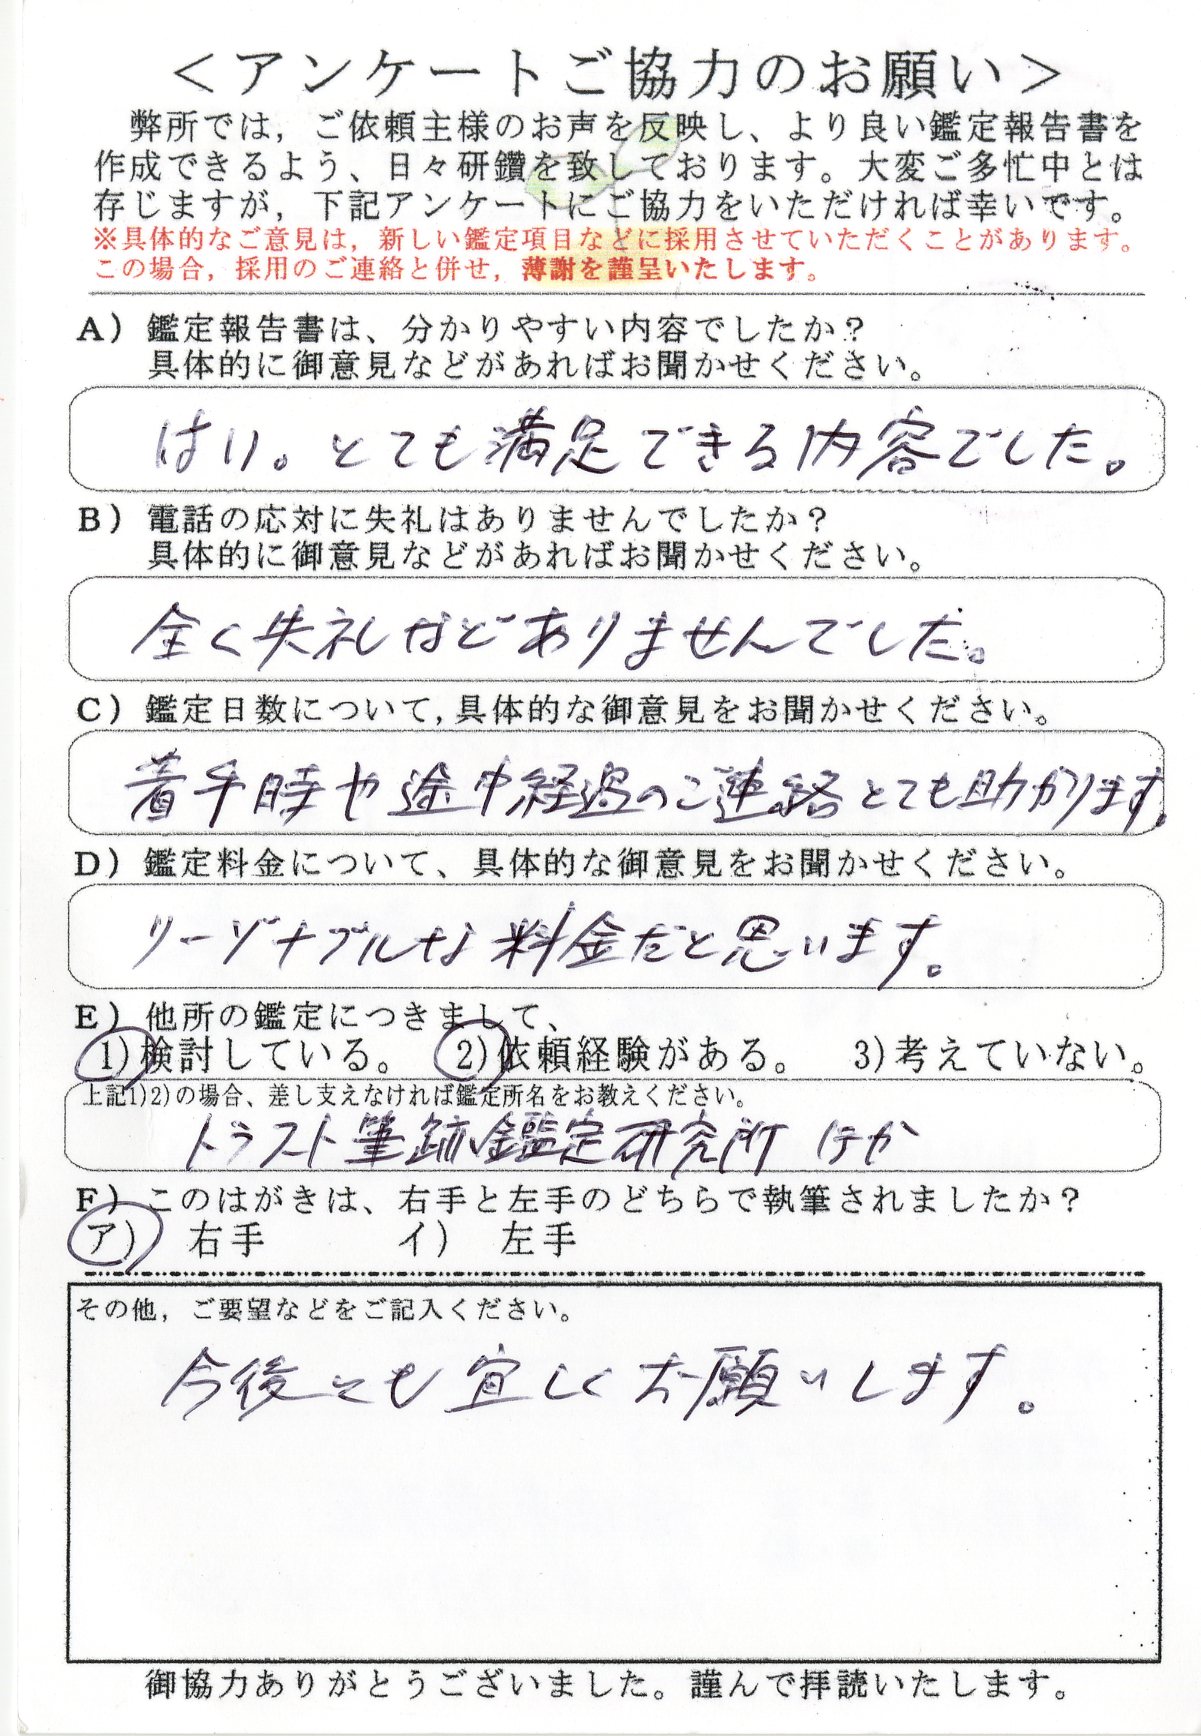 ＜アンケートご協力のお願い＞
弊所では，ご依頼主様のお声を反映し、より良い鑑定報告書を
作成できるよう、日々研鑽を致しております。大変ご多忙中とは
存じますが，下記アンケートにご協力をいただければ幸いです。
※具体的なご意見は，新しい鑑定項目などに採用させていただくことがあります。
この場合，採用のご連絡と併せ，薄謝を謹呈いたします。
A）鑑定報告書は、分かりやすい内容でしたか？
具体的に御意見などがあればお聞かせください。
はい。とても満足できる内容でした。
B）電話の応対に失礼はありませんでしたか？
具体的に御意見などがあればお聞かせください。
全く失礼などありませんでした。
C）鑑定日数について，具体的な御意見をお聞かせください。
着手時や途中経過のご連絡とても助かります。
D）鑑定料金について、具体的な御意見をお聞かせください。
リーゾナブルな料金だと思います。
E）他所の鑑定につきまして、
1)検討している。 2)依頼経験がある。 3)考えていない。
上記1)2)の場合、差し支えなければ鑑定所名をお教えください。
トラスト筆跡鑑定研究所 ほか
F）このはがきは、右手と左手のどちらで執筆されましたか？
ア） 右手 イ） 左手
その他，ご要望などをご記入ください。
今後とも宜しくお願いします。
御協力ありがとうございました。謹んで拝読いたします。